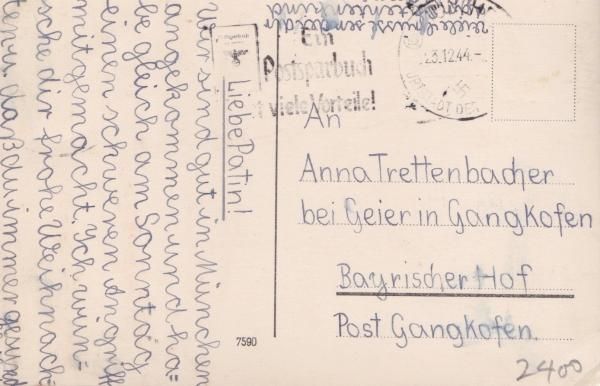 Liebe Patin!
Wir sind gut in München
angekommen und ha=
be gleich am Sonntag
einen schweren Angriff
mitgemacht. Ich wün=
sche dir frohe Weihnach=
ten u. daß du immer gesund
sendet dir
Ein
Postsparbuch
viele Vorteile!
23.12.44.-
An
Anna Trettenbacher
bei Geier in Gangkofen
Bayrischer Hof
Post Gangkofen.
7590
2400